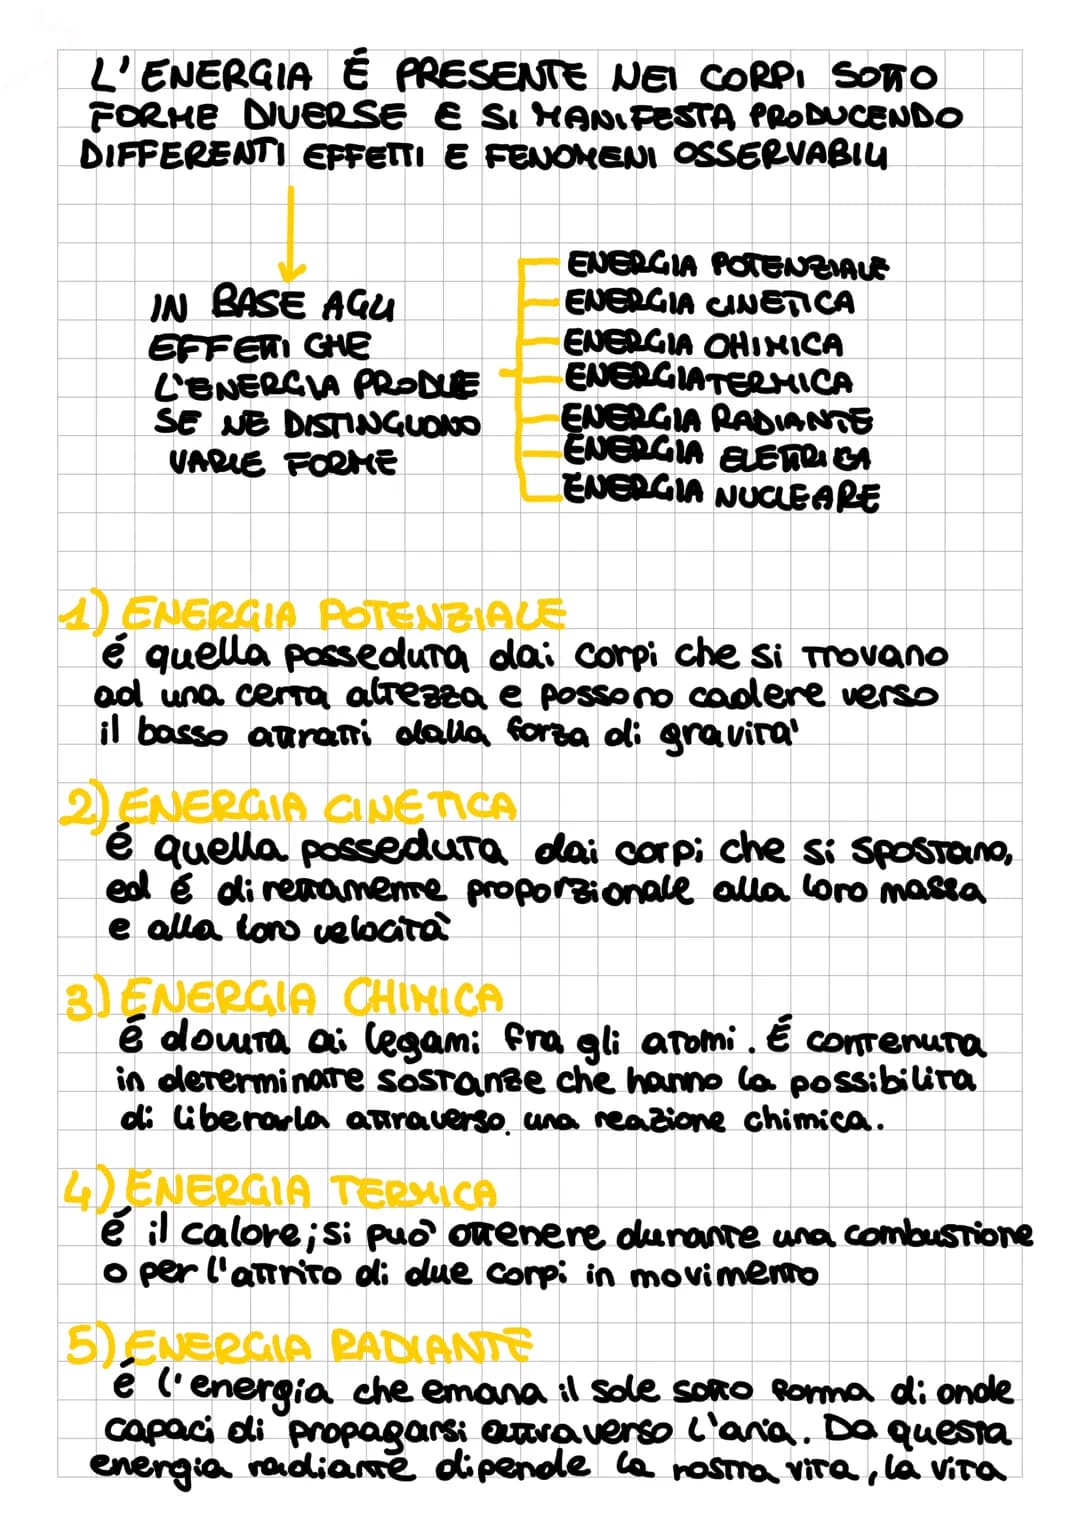 L'ENERGIA É PRESENTE NEI CORPI SOTTO
FORME DIVERSE E SI MANIFESTA PRODUCENDO
DIFFERENTI EFFETTI E FENOMENI OSSERVABILI
IN BASE AGLI
EFFETTI CHE
L'ENERGIA PRODUE
SE NE DISTINGUONO
VARIE FORME
ENERGIA POTENZIALE
ENERGIA CINETICA
ENERGIA CHIMICA
ENERGIA TERMICA
ENERGIA RADIANTE
ENERGIA ELETTRICA
ENERGIA NUCLEARE
1) ENERGIA POTENZIALE
é quella posseduta dai corpi che si trovano
ad una certa altezza e possono cadere verso
il basso attratti dalla forza di gravita'
2) ENERGIA CINETICA
é quella posseduta dai corpi che si spostano,
ed é direttamente proporzionale alla loro massa
e alla loro velocità
3) ENERGIA CHIMICA
é dovuta ai legami fra gli atomi. É contenuta
in determinate sostanze che hanno la possibilita
di liberarla attraverso una reazione chimica.
4) ENERGIA TERMICA
é il calore; si può ottenere durante una combustione
o per l'attrito di due corpi in movimento
5) ENERGIA RADIANTE
é l'energia che emana il sole sotto forma di onde
capaci di propagarsi attraverso l'aria. Da questa
energia radiante dipende la nostra vita, la vita